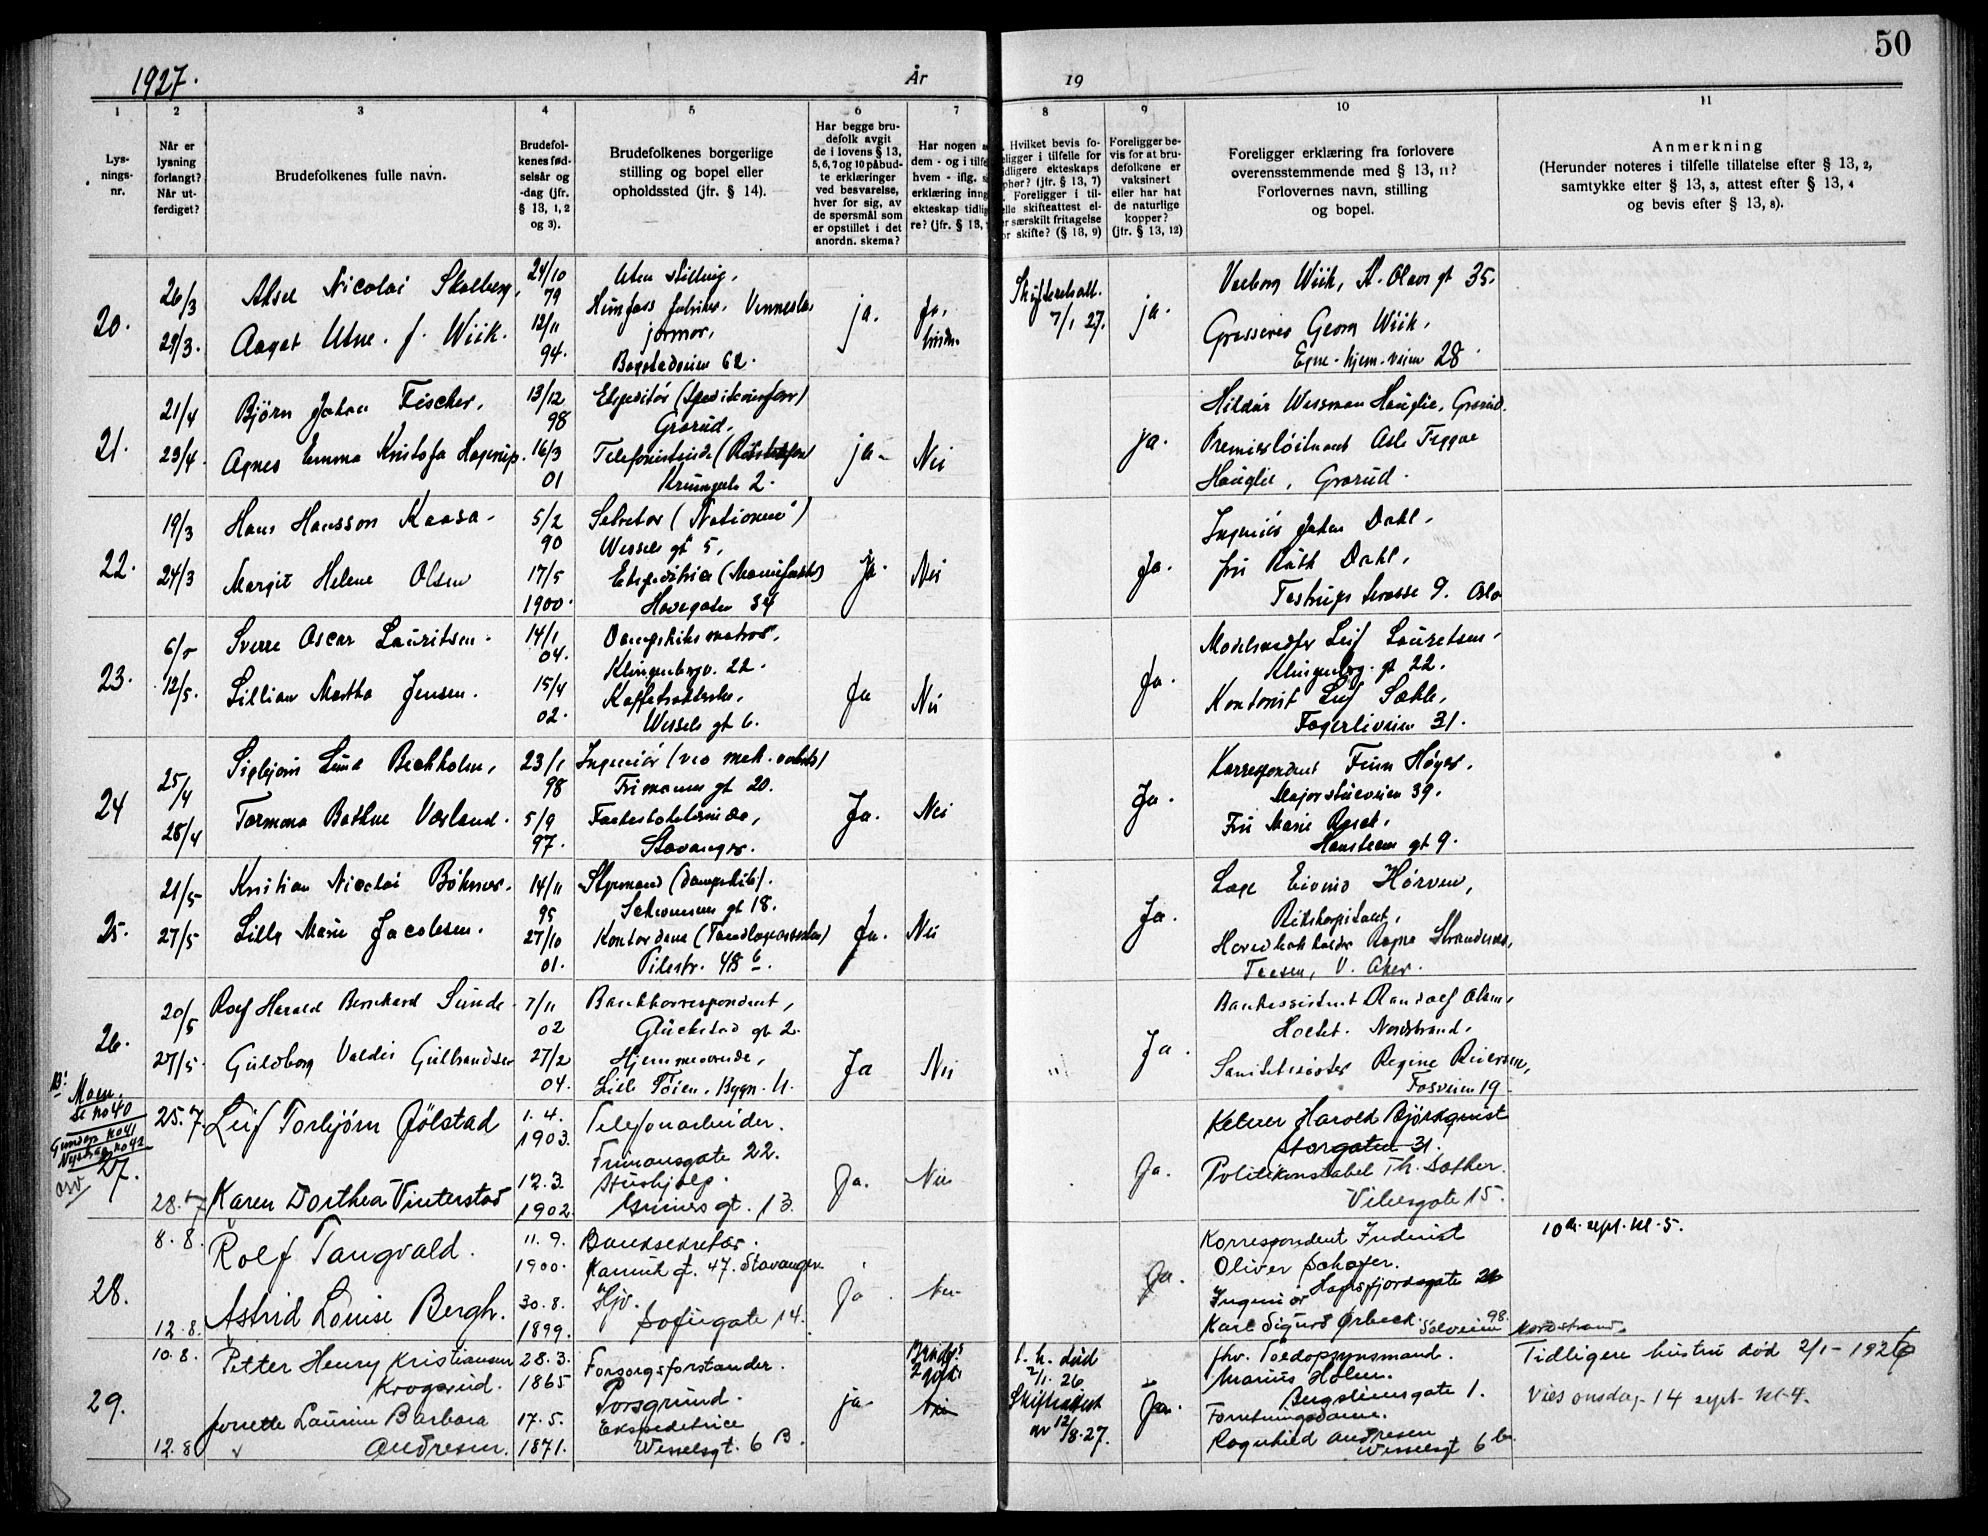 50
1927.
År
19
1
2
3
4
5
6
7
8
9
10
11
Lys-
nings-
nr.
Når er
lysning
forlangt?
Når ut-
ferdiget?
Brudefolkenes fulle navn.
Brudefol-
kenes fød-
selsår og
-dag (jfr.
§ 13, 1, 2
og 3).
Brudefolkenes borgerlige
stilling og bopel eller
opholdssted (jfr. § 14).
Har begge bru-
defolk avgit
de i lovens § 13,
5, 6, 7 og 10 påbud-
te erklæringer
ved besvarelse,
hver for sig, av
de spørsmål som
er opstillet i det
anordn. skema?
Har nogen a
dem - og i tilfe
hvem - iflg. s
erklæring inng
ekteskap tidlig
re? (jfr. § 13,
Hvilket bevis fo-
eligger i tilfelle for
idligere ekteskaps
phør? (jfr. § 13, 7)
Foreligger i til-
elle skifteattest el-
r særskilt fritagelse
or skifte? (§ 13, 9)
Foreligger be-
vis for at bru-
defolkene er
vaksinert
eller har hat
de naturlige
kopper?
(jfr. § 13, 12)
Foreligger erklæring fra forlovere
overensstemmende med § 13, 11?
Forlovernes navn, stilling
og bopel.
Anmerkning
(Herunder noteres i tilfelle tillatelse efter § 13, 2,
samtykke efter § 13, 3, attest efter § 13, 4
og bevis efter § 13, 8).
20.
26/3
29/3.
Aksel Nicolai Skolberg,
Aagot Utne f. Wiik.
24/10
79
12/11
94.
Uten stilling,
Hunsfoss fabriker, Vennesla
jormor,
Bogstadveien 62.
ja.
Ja,
Skifteretsatt.
7/1 27.
ja.
Valborg Wiik, St. Olavs gt 35.
Grosserer Georg Wiik,
Egne-hjem-veien 28.
21.
21/4
23/4.
Bjørn Johan Fischer,
Agnes Emma Kristofa Hagerup.
13/12
98
16/3
01
Grorud,
2.
ja.
Nei
ja.
Hildur Wessman Hauglie, Grorud.
Premierløitnant Asle Tryggve
Hauglie, Grorud.
22.
19/3
24/3
Hans Hansson Kaasa.
Margit Helene Olsen
5/2
90
17/5
1900.
Sekretær ("Nationen")
Wessels gt 5,
Ekspeditrice (Manufaktur)
Havegaten 34
Ja.
Nei
Ja.
Ingeniør Johan Dahl,
fru Ruth Dahl,
Tostrups terrasse 9. Oslo
23.
6/5
12/5.
Sverre Oscar Lauritsen.
Lillian Martha Jensen.
14/1
04.
15/4
02.
Dampskibsmatros,
Klingenbergg. 22.
Wessels gt 6.
Ja
Nei
Ja.
Leif Lauritsen,
Klingenbg. gt 22.
Kontorist Leif Sæhle,
Fagerliveien 31.
24
25/4
28/4
Sigbjørn Lund Beckholm,
Tormona Bothne Værland.
23/1
98
5/9
97.
Ingeniør (ved mek. verksted)
Frimanns gt 20.
Stavanger.
Ja.
Nei
Ja.
Korrespondent Finn Høyer,
Majorstuveien 39.
Fru Marie
Hansteens gt 9.
25.
21/5
27/5
Kristian Nicolai Böhmer.
Lilly Marie Jacobsen.
14/11
95
27/10
01.
Styrmand (dampskib).
Schwensens gt 18.
Kontordame
Pilestr. 48 b.
Ja.
Nei
Ja.
Læge Eivind
Rikshospitalet,
Ragna Strandenæs,
V. Aker.
26.
20/5
27/5.
Rolf Harald Bernhard Sunde.
Guldborg Valdis Gulbrandsen
7/11
02
27/2
04.
Bankkorrespondent,
Glückstad gt 2.
Hjemmeværende,
Lille Tøien. Bygn. U.
Ja
Nei
"
Ja.
Bankassistent Randolf Olsen,
Holtet. Nordstrand.
Sanitetssøster Regine Reiersen,
Fosveien 19
Moen.
Se no 40
no 41
no 42
osv
27.
25.7.
28.7
Leif Torbjørn Jölstad
Karen Dorthea Vinterstad
1.4.
1903.
12.3.
1902
Telefonarbeider.
Frimansgate 22.
Hushjælp.
Grinis gt. 13.
Ja.
Nei
Ja.
Kelner Harald Björkquist
Storgaten 31.
Politikonstabel Th. Sæther.
Vibesgate 15.
28.
8.8.
12.8.
Rolf Tangvald.
Astrid Louise Bergh.
11.9.
1900.
30.8.
1899.
Banksekretær.
Kannik gt. 47. Stavanger
Hjv.
Sofiegate 14.
Ja
Nei
Ja.
Korrespondent Fredrik
Oliver Schøfer.
Hafrsfjordsgate 24
Ingeniør
Karl Sigurd Ørbeck. Solveien 98. Nordstrand.
10de sept. kl. 5.
29.
10.8.
12.8
Petter Henry Kristiansen
Krogsrud.
Jonette Laurine Barbara
Andresen.
28.3.
1865
17.5.
1871.
Forsorgsforstander.
Porsgrund.
Ekspeditrice
Wesselsgt. 6 B.
ja
Nei
1. h. død
2/1. 26
Skifteattest
av 12/8.27.
Ja.
fhv. Toldopsynsmand.
Marius Holm.
Bergsliensgate 1.
Forretningsdame.
Ragnhild Andresen
Wesselsgt 6 b.
Tidligere hustru død 2/1-1926
Vies onsdag 14 sept. kl. 4.